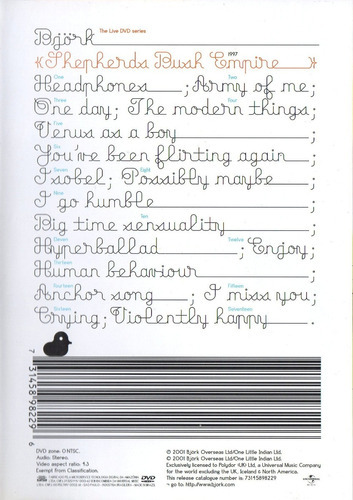 Björk The Live DVD series
Shepherds Bush Empire 1997
One Two
Headphones ; Army of me ;
Three Four
One day ; The modern things ;
Five
Venus as a boy ;
Six
You've been flirting again ;
Seven Eight
Isobel ; Possibly maybe ;
Nine
I go humble ;
Ten
Big time sensuality ;
Eleven Twelve
Hyperballad ; Enjoy ;
Thirteen
Human behaviour ;
Fourteen Fifteen
Anchor song ; I miss you ;
Sixteen Seventeen
Crying ; Violently happy .
7 31458 98229 6
DVD zone: 0 NTSC.
Audio: Stereo.
Video aspect ratio: 4:3
Exempt from Classification.
DVD
© 2001 Björk Overseas Ltd/One Little Indian Ltd.
℗ 2001 Björk Overseas Ltd/One Little Indian Ltd.
Exclusively licensed to Polydor (UK) Ltd, a Universal Music Company
for the world excluding the UK, Iceland & North America.
This release catalogue number is: 73145898229
> go to: http://www.bjork.com
UNIVERSAL